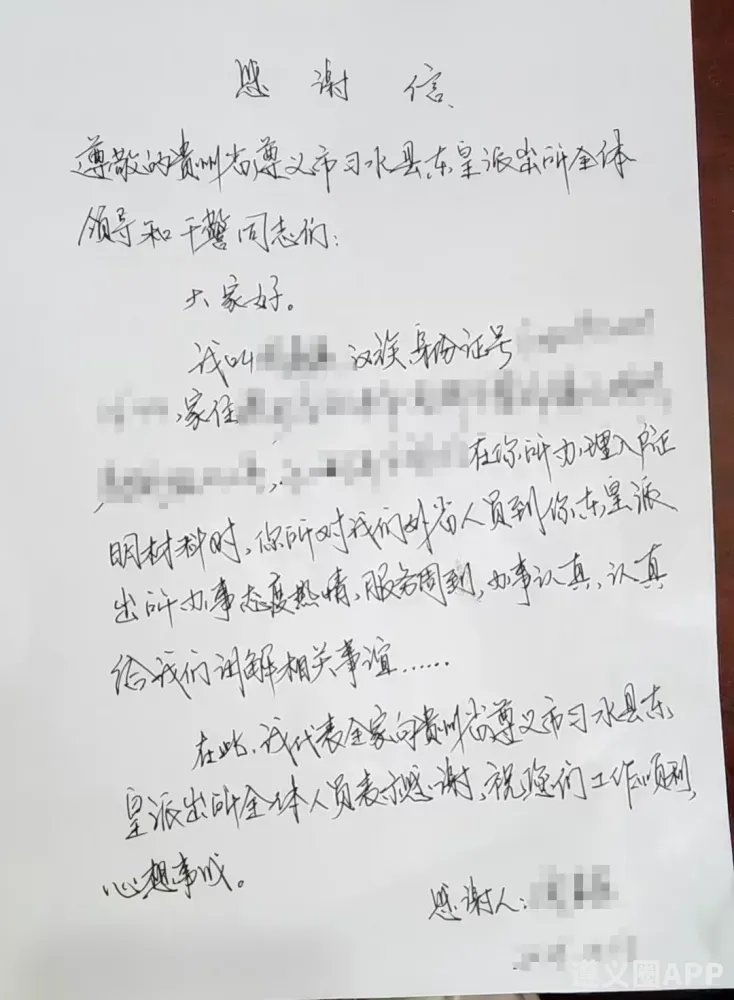 感谢信
尊敬的贵州省遵义市习水县东皇派出所全体
领导和干警同志们:
大家好。
我叫 汉族,身份证号
,家住
, 在你所办理入户证
明材料时,你所对我们外省人员到你东皇派
出所办事态度热情,服务周到,办事认真,认真
给我们讲解相关事谊……
在此,我代表全家向贵州省遵义市习水县东
皇派出所全体人员表示感谢,祝您们工作顺利,
心想事成。
感谢人:
遵义圈APP